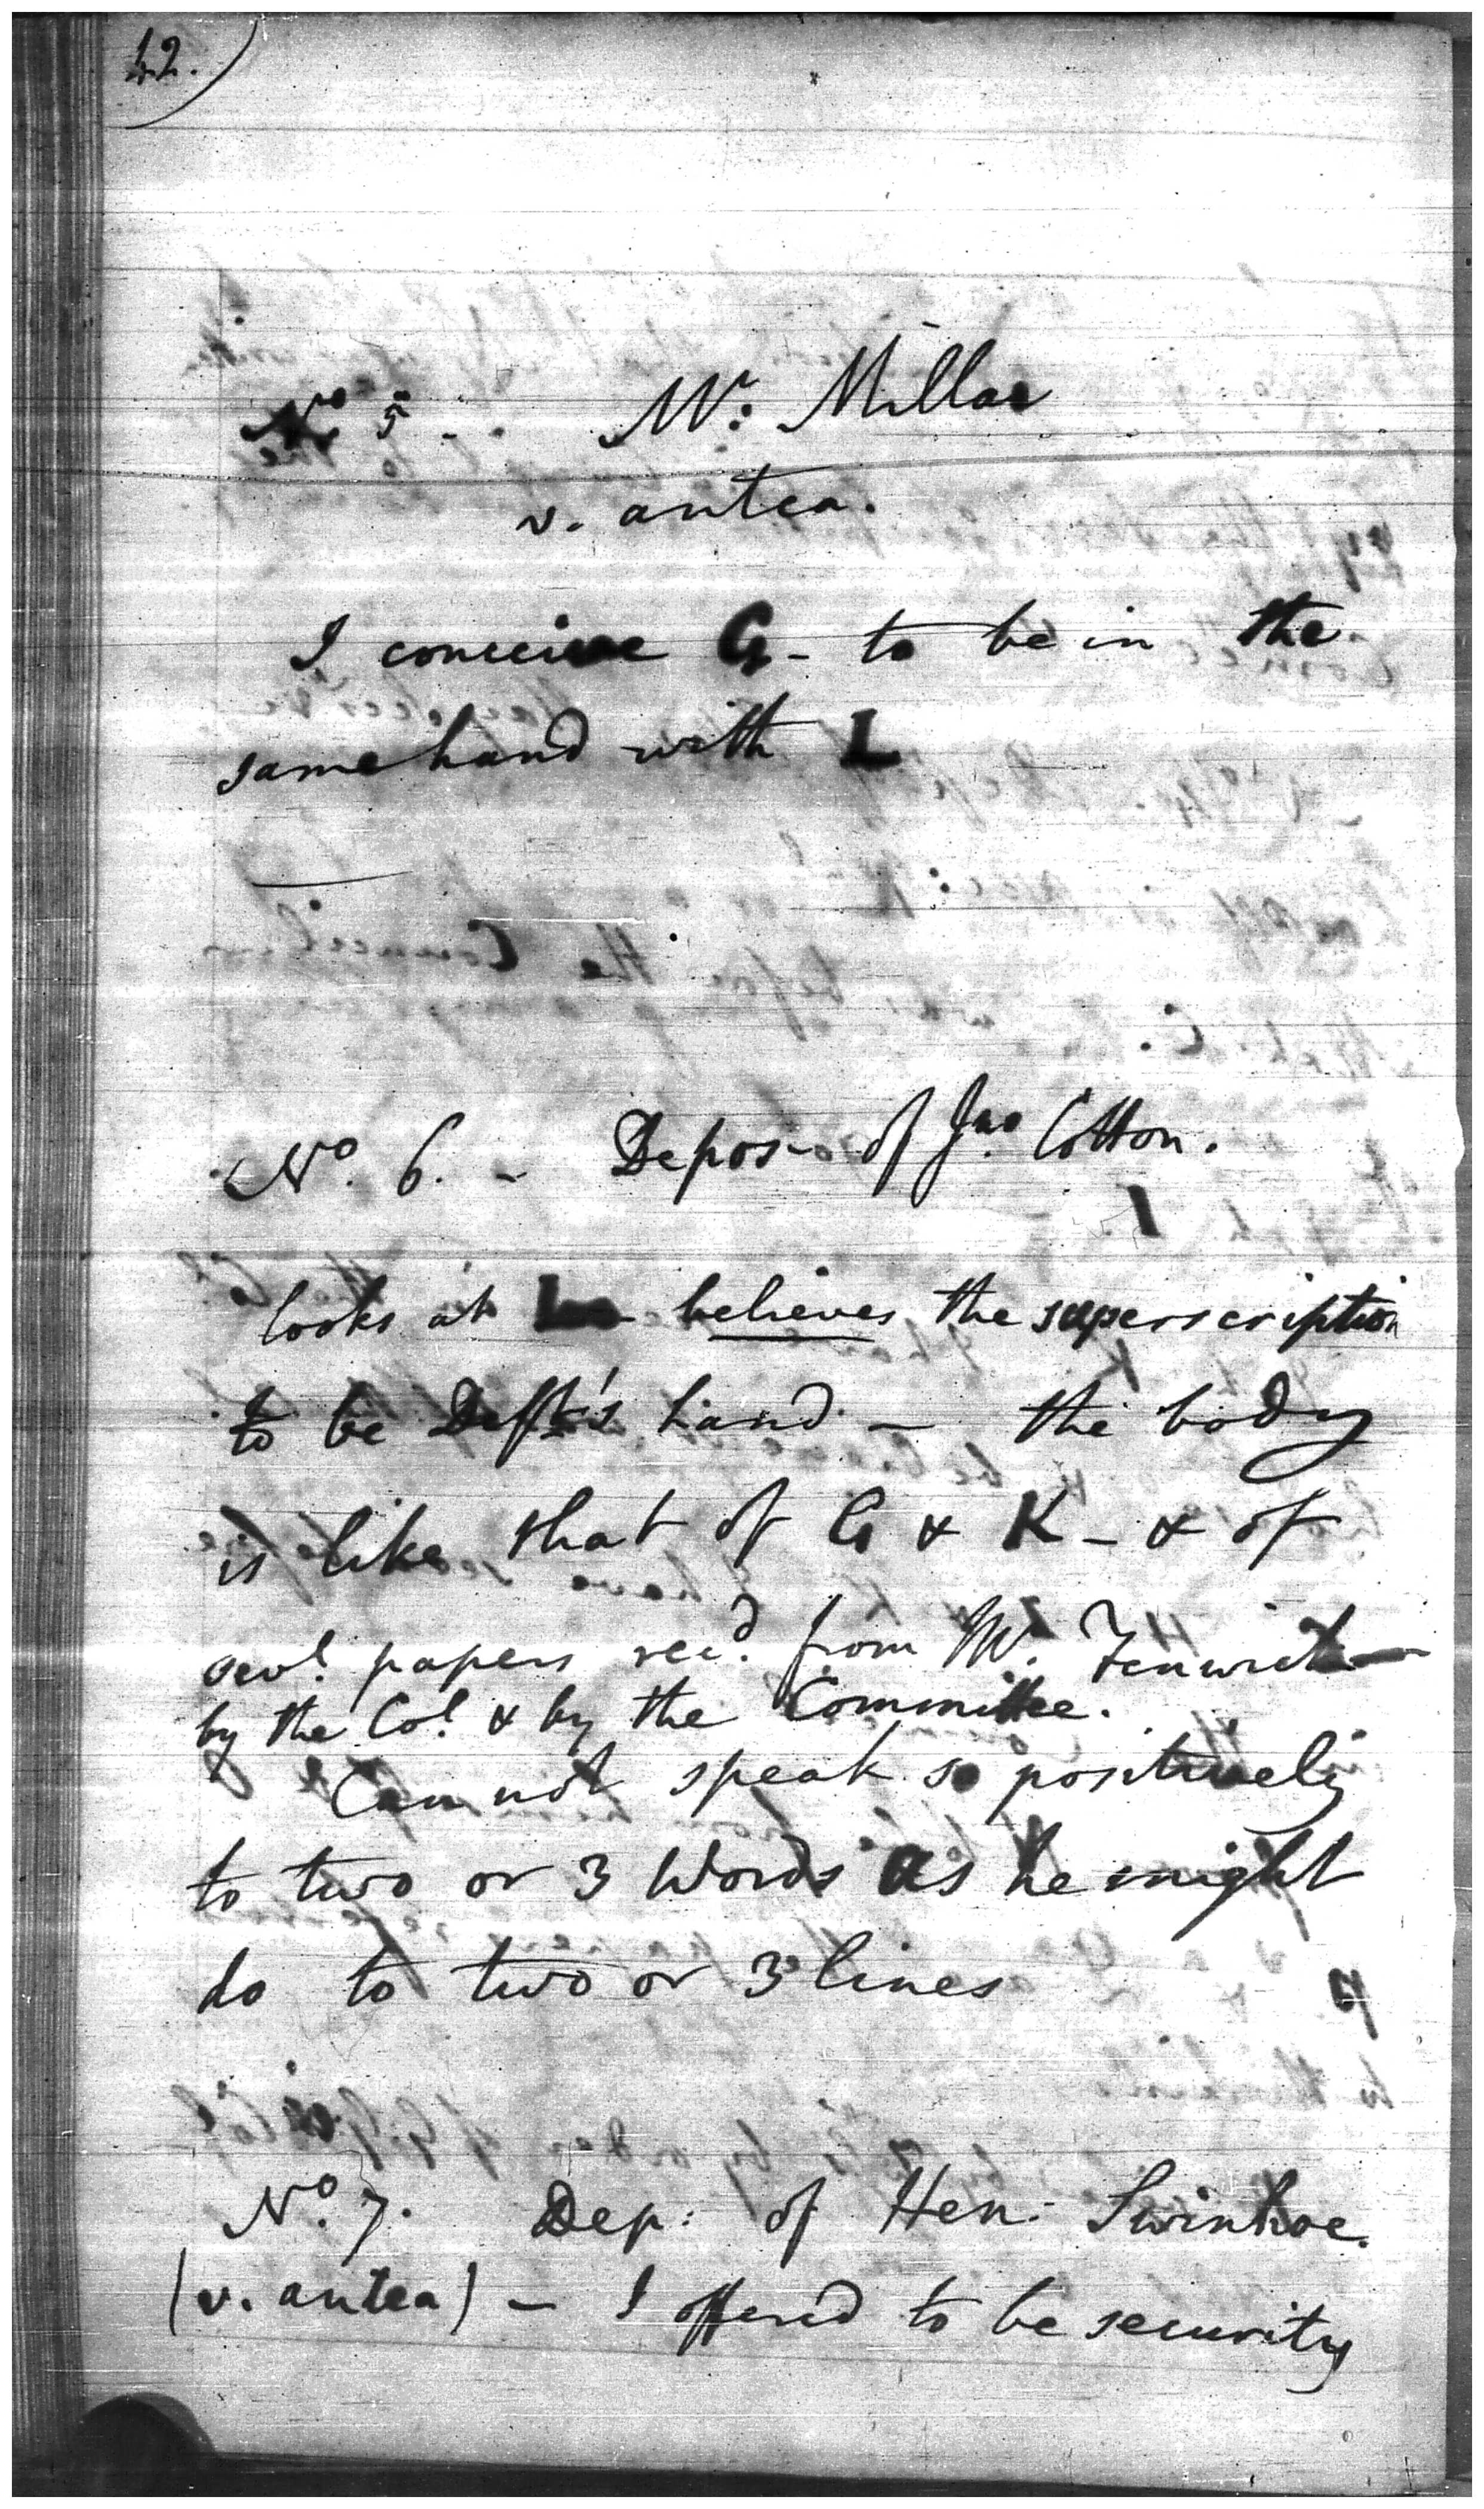 42.)
No. 5 - . Mr. Millar
v. antea.
I conceive G - to be in the
same hand with L
No. 6. - Depos - of Jno. Cotton.
looks at believes the superscription
to be Deft's hand - the body
is like that of G & K - & of
sevl. papers recd. from Mr. Fenwick
by the Col. & by the Committee.
Can not speak so positively
to two or 3 Words as he might
do to two or 3 lines
No. 7. Dep: of Hen: Swinhoe.
(v. antea) - I offered to be security